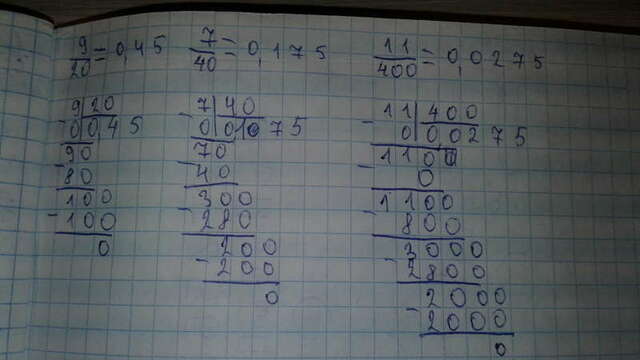 9/20 = 0,45
- 9 | 20
0 | 0,45
90
- 80
100
- 100
0
7/40 = 0,175
- 7 | 40
0 | 0,175
70
- 40
300
- 280
200
- 200
0
11/400 = 0,0275
- 11 | 400
0 | 0,0275
- 110
0
1100
- 800
3000
- 2800
2000
- 2000
0